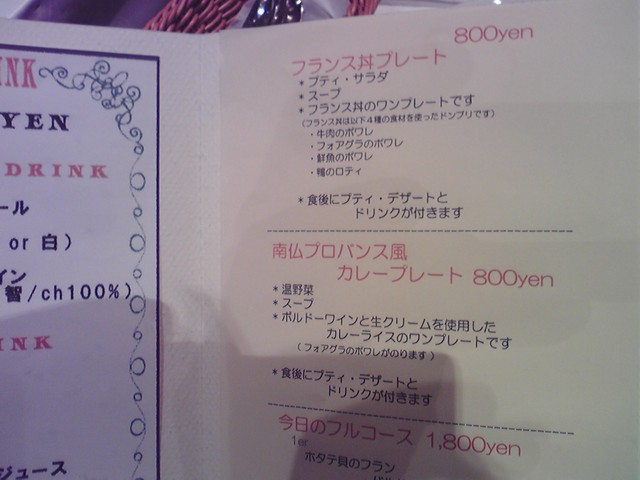 INK
YEN
DRINK
ール
or 白）
イン
智/ch100%）
INK
ジュース
800yen
フランス丼プレート
＊プティ・サラダ
＊スープ
＊フランス丼のワンプレートです
（フランス丼は以下４種の食材を使ったドンブリです）
・牛肉のポワレ
・フォアグラのポワレ
・鮮魚のポワレ
・鴨のロティ
＊食後にプティ・デザートと
ドリンクが付きます
南仏プロバンス風
カレープレート 800yen
＊温野菜
＊スープ
＊ボルドーワインと生クリームを使用した
カレーライスのワンプレートです
（フォアグラのポワレがのります）
＊食後にプティ・デザートと
ドリンクが付きます
今日のフルコース 1,800yen
1er
ホタテ貝のフラン